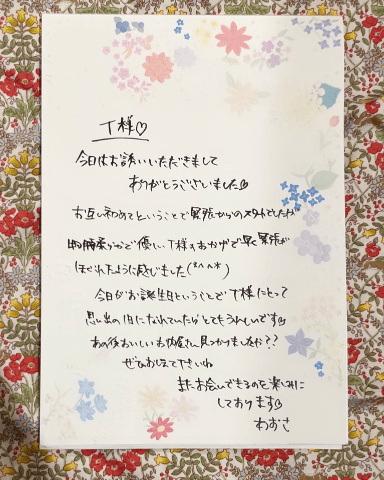 T様♡
今日はお誘いいただきまして
ありがとうございました♡
お互い初めてということで緊張からのスタートでしたが
物腰柔らかで優しいT様のおかげで早く緊張が
ほぐれたように感じました(*^^*)
今日がお誕生日ということでT様にとって
思い出の1日になれていたらとてもうれしいです♡
あの後おいしいお店さん見つかりましたか??
ぜひおしえて下さいね
またお会いできるのを楽しみに
しております♡